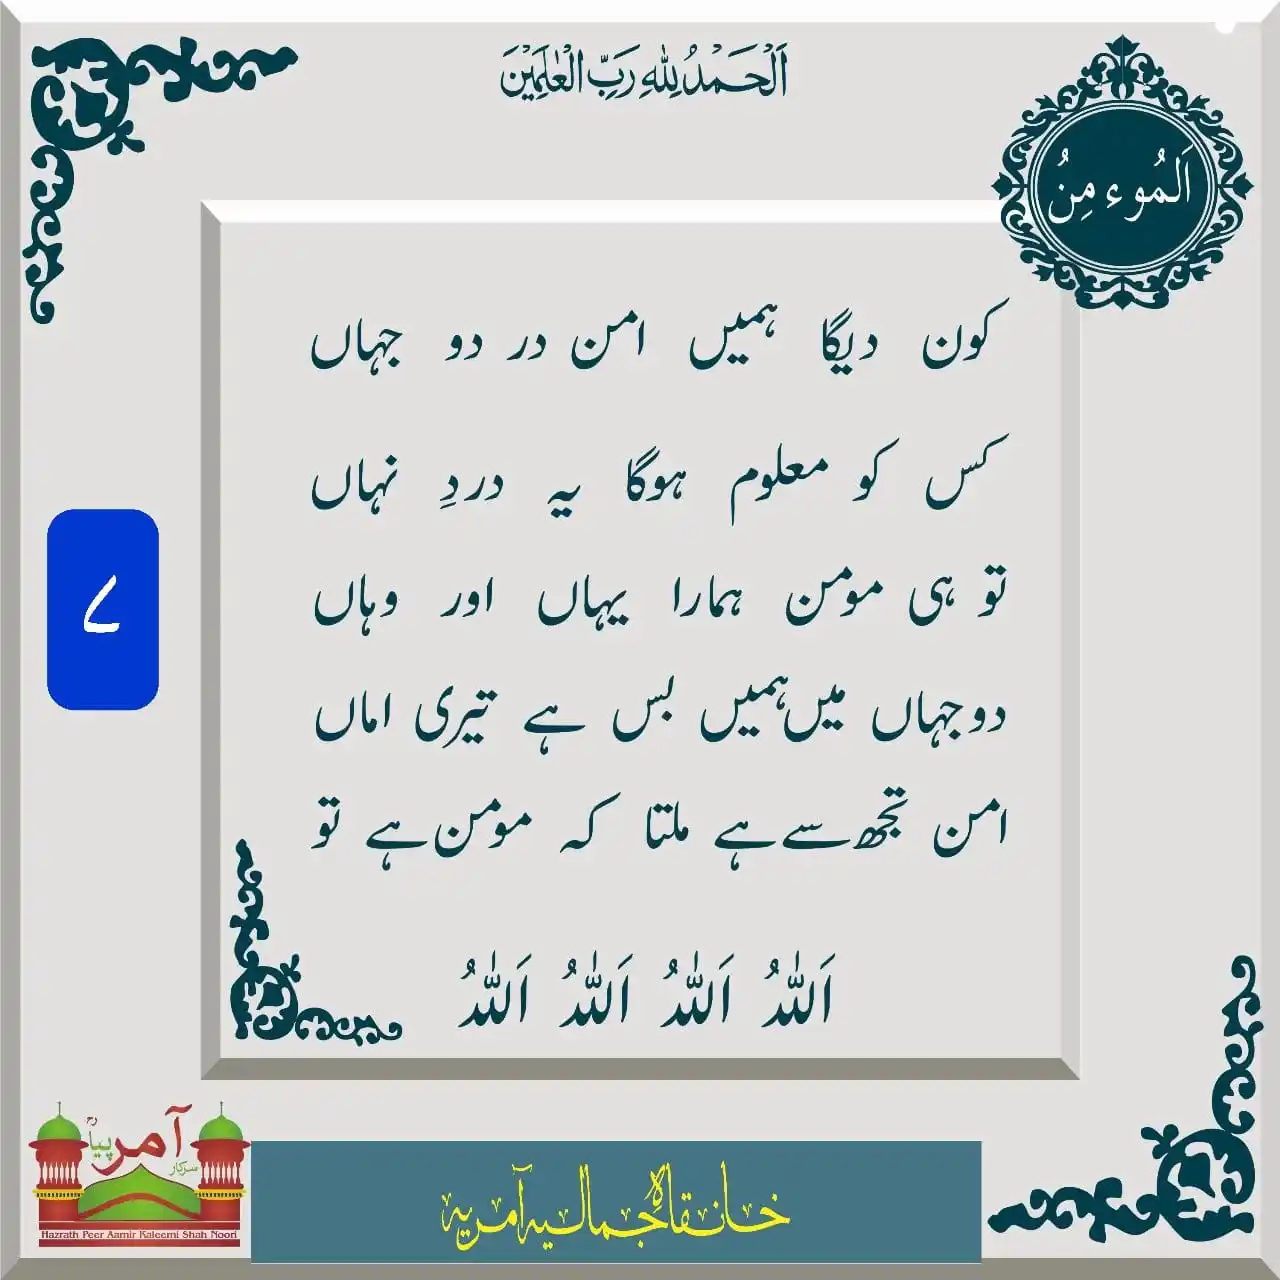 اَلْحَمْدُ لِلّٰهِ رَبِّ الْعٰلَمِيْنَ
اَلمُوء مِنُ
کون دیگا ہمیں امن در دو جہاں
کس کو معلوم ہوگا یہ دردِ نہاں
تو ہی مومن ہمارا یہاں اور وہاں
دوجہاں میں ہمیں بس ہے تیری اماں
امن تجھ سے ہے ملتا کہ مومن ہے تو
اَللّٰہُ اَللّٰہُ اَللّٰہُ اَللّٰہُ
۷
سرکار آمر پیاؒ
Hazrath Peer Aamir Kaleemi Shah Noori
خانقاہ جمالیہ آمریہ